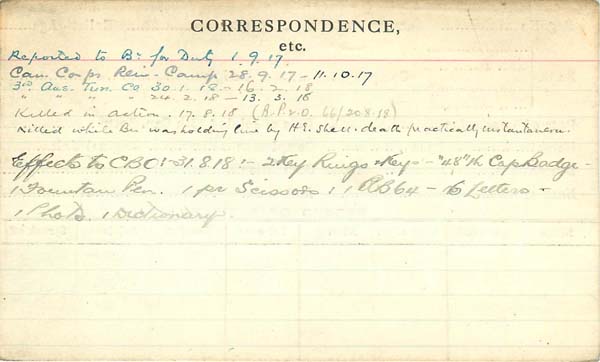 CORRESPONDENCE,
etc.
Reported to Bn for Duty 1.9.17.
Can. Corps Rein. Camp 28.9.17 - 11.10.17
3rd Aus. Tun. Co 30.1.18 - 16.2.18
" " " " 24.2.18 - 13.3.18
Killed in action. 17.8.18 (B.P.2.O. 66/20.8.18)
Killed while Bn was holding line by H.E. shell - death practically instantaneous.
Effects to CBO - 31.8.18 :- 2 Key Rings & Keys - "48"th Cap Badge -
1 Fountain Pen. 1 pr Scissors 1 AB64 - 6 Letters -
1 Photo. 1 Dictionary.